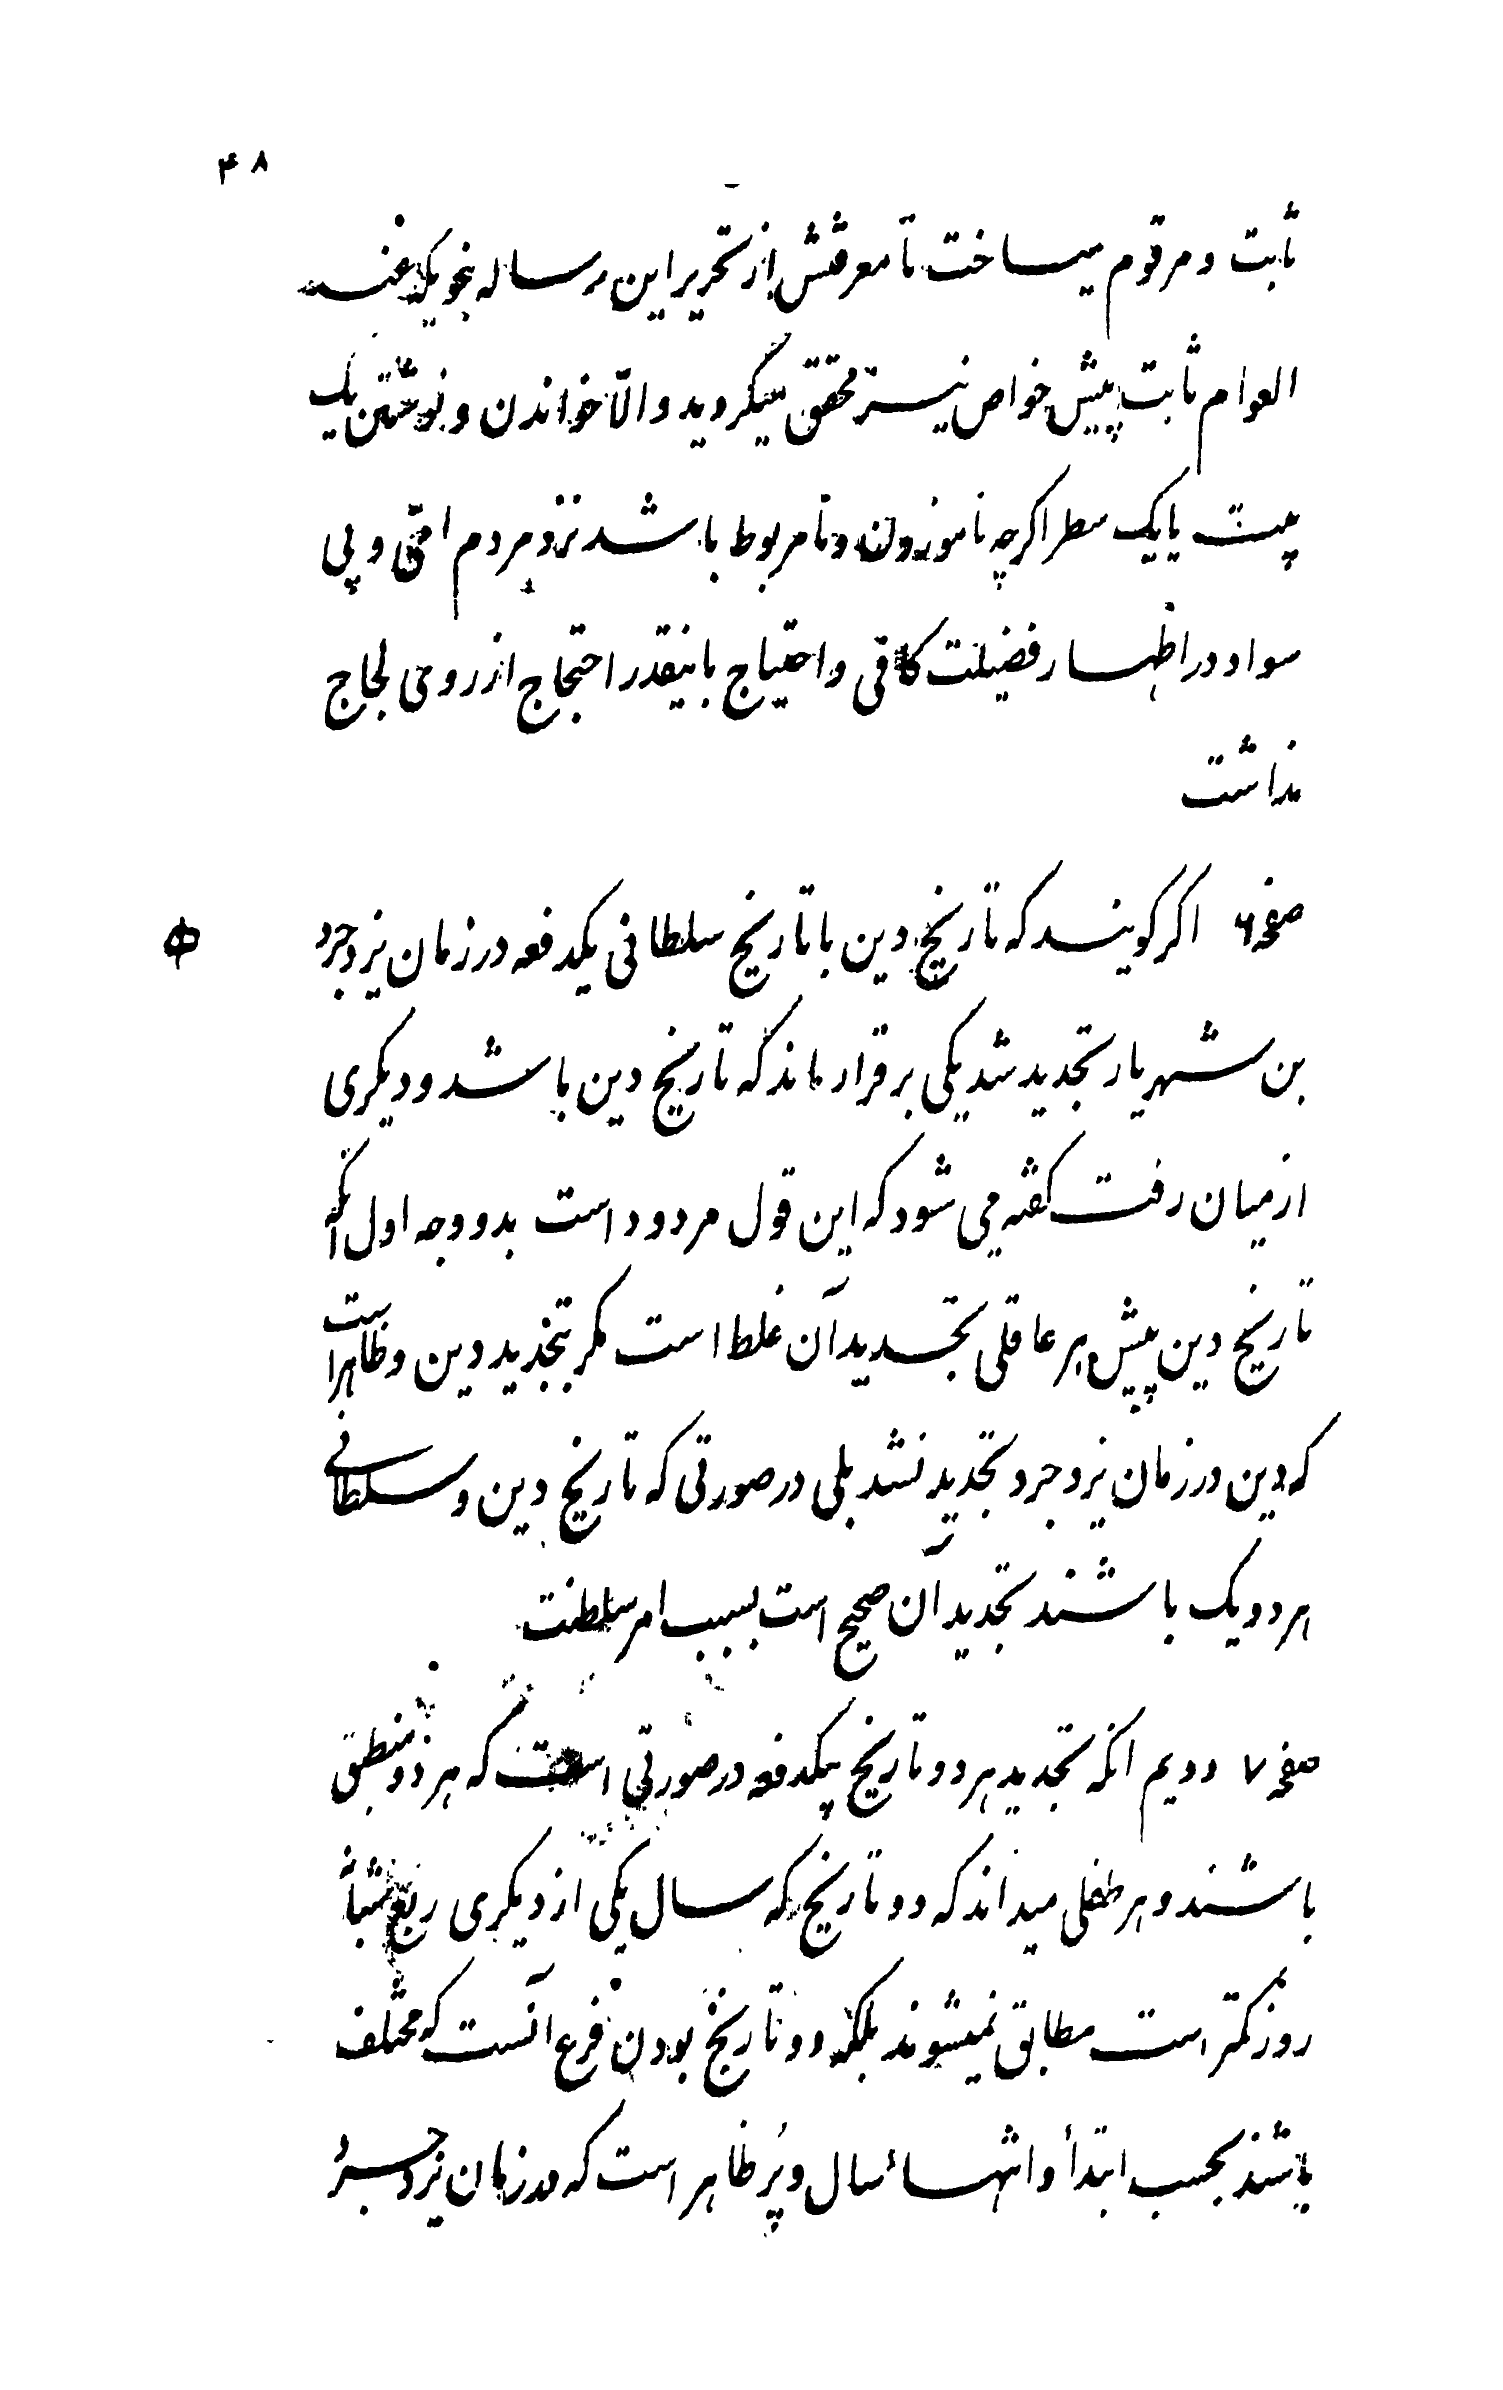 ۴۸
ثابت و مرقوم میساخت تا معرفتش از تحریر این رساله بنحویکه عند
العوام ثابت پیش خواص نیز محقق میگردید والّا خواندن و نوشتن یک
بیت یا یک سطر اگرچه ناموزون و نامربوط باشد نزد مردم امّی و بی
سواد در اظهار فضیلت کافی و احتیاج باینقدر احتجاج از روی لجاج
نداشت
صفحه ۶ اگر گویند که تاریخ دین با تاریخ سلطانی یکدفعه در زمان یزدجرد
بن شهریار تجدید شد یکی برقرار ماند که تاریخ دین باشد و دیگری
از میان رفت گفته می شود که این قول مردود است بدو وجه اول انکه
تاریخ دین پیش هر عاقلی تجدید آن غلط است مگر بتجدید دین و ظاهراست
که دین در زمان یزدجرد تجدید نشد بلی در صورتی که تاریخ دین و سلطانی
هر دو یک باشند تجدید آن صحیح است بسبب امر سلطنت
صفحه ۷ دویم انکه تجدید هر دو تاریخ بیکدفعه در صورتی است که هر دو منطبق
باشند و هر طفلی میداند که دو تاریخ که سال یکی از دیگری ربع شبانه
روز کمتر است مطابق نمیشوند بلکه دو تاریخ بودن فرع آنست که مختلف
باشند بحسب ابتدأ و انتهاء سال و پُر ظاهر است که در زمان یزدجرد